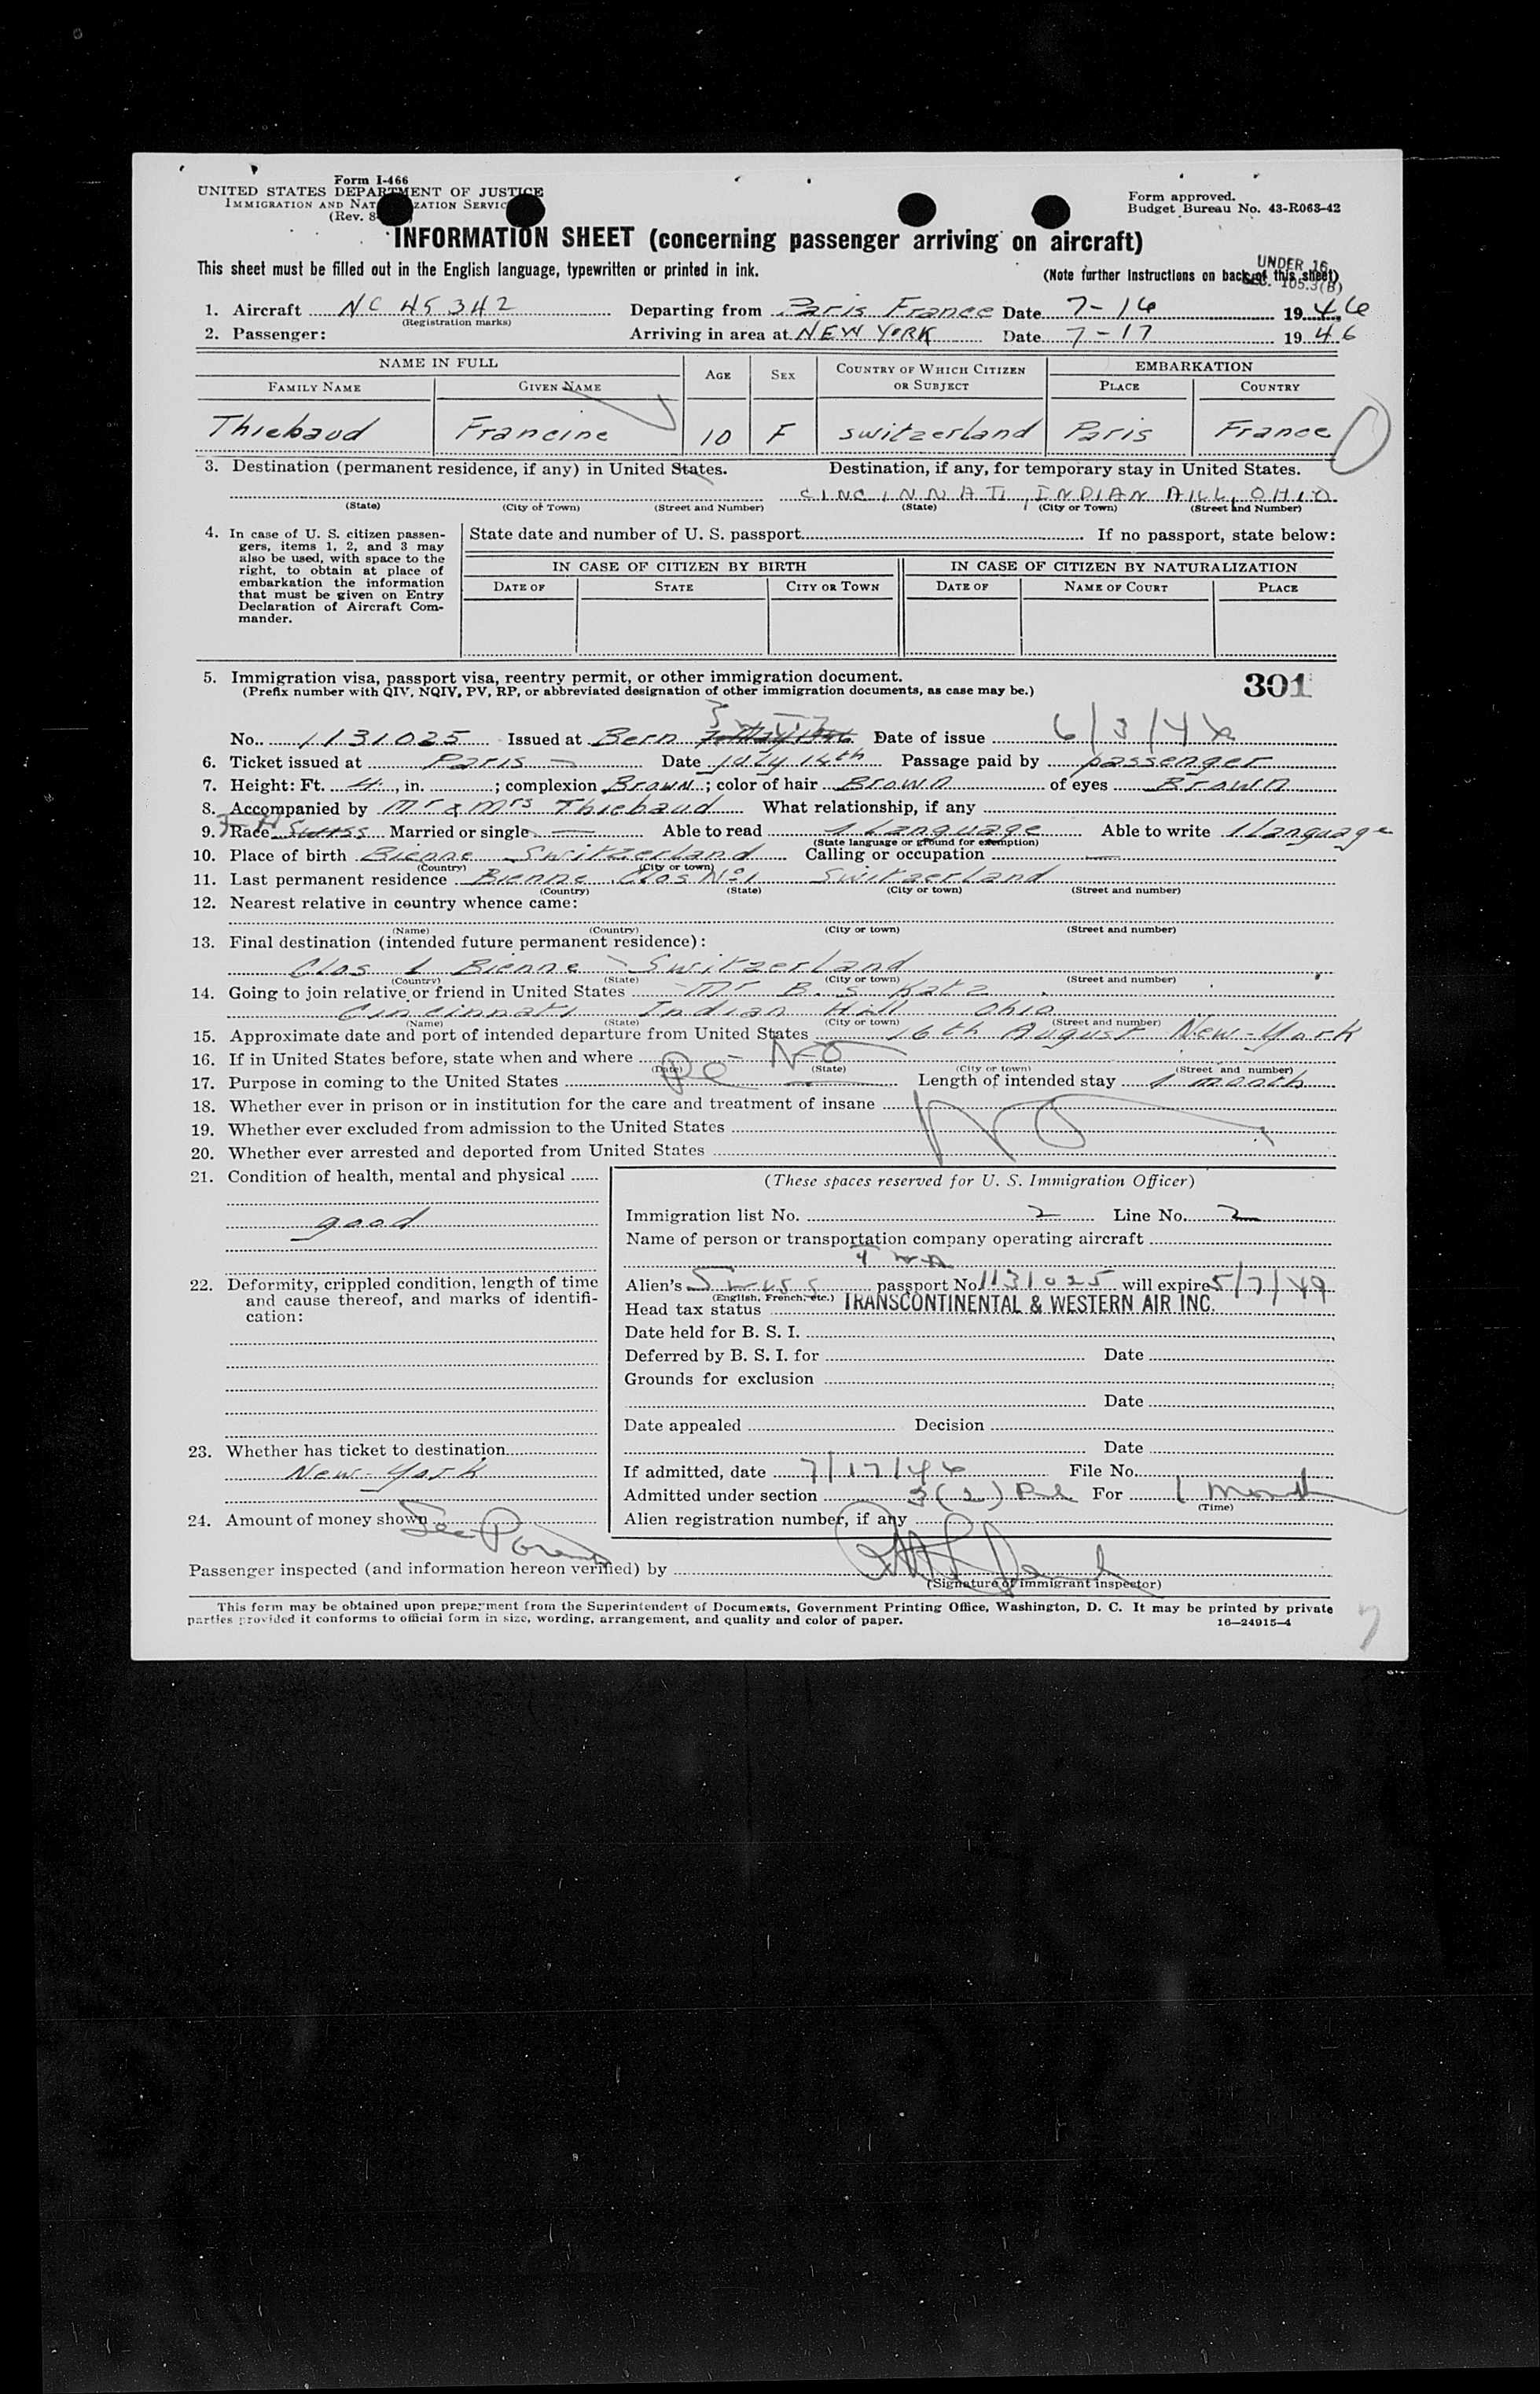 Form I-466
UNITED STATES DEPARTMENT OF JUSTICE
Form approved.
Budget Bureau No. 43-R063-42
(Rev. 8-
INFORMATION SHEET (concerning passenger arriving on aircraft)
UNDER 16
This sheet must be filled out in the English language, typewritten or printed in ink. (Note further instructions on back of this sheet)
SEC. 105.3(B)
1. Aircraft NC 45342 Departing from Paris France Date 7-16 1946
(Registration marks)
2. Passenger: Arriving in area at NEW YORK Date 7-17 1946
NAME IN FULL AGE SEX COUNTRY OF WHICH CITIZEN OR SUBJECT EMBARKATION
FAMILY NAME GIVEN NAME PLACE COUNTRY
Thiebaud Francine 10 F Switzerland Paris France
3. Destination (permanent residence, if any) in United States. Destination, if any, for temporary stay in United States.
CINCINNATI, INDIAN HILL, OHIO
(State) (City or Town) (Street and Number) (State) (City or Town) (Street and Number)
4. In case of U. S. citizen passengers, items 1, 2, and 3 may also be used, with space to the right, to obtain at place of embarkation the information that must be given on Entry Declaration of Aircraft Commander.
State date and number of U. S. passport If no passport, state below:
IN CASE OF CITIZEN BY BIRTH IN CASE OF CITIZEN BY NATURALIZATION
DATE OF STATE CITY OR TOWN DATE OF NAME OF COURT PLACE
5. Immigration visa, passport visa, reentry permit, or other immigration document.
(Prefix number with QIV, NQIV, PV, RP, or abbreviated designation of other immigration documents, as case may be.)
301
No. 1131025 Issued at Bern Date of issue 6/3/46
6. Ticket issued at Paris Date July 14th Passage paid by passenger
7. Height: Ft. 4, in. ; complexion Brown; color of hair Brown of eyes Brown
8. Accompanied by Mr & Mrs Thiebaud What relationship, if any
9. Race Swiss Married or single — Able to read 1 Language Able to write 1 Language
(State language or ground for exemption)
10. Place of birth Bienne Switzerland Calling or occupation —
(Country) (City or town)
11. Last permanent residence Bienne Clos No 1 Switzerland
(Country) (State) (City or town) (Street and number)
12. Nearest relative in country whence came:
(Name) (Country) (City or town) (Street and number)
13. Final destination (intended future permanent residence):
Clos 1 Bienne - Switzerland
(Country) (State) (City or town) (Street and number)
14. Going to join relative or friend in United States Mr B. S. Katz
Cincinnati Indian Hill Ohio
(Name) (State) (City or town) (Street and number)
15. Approximate date and port of intended departure from United States 16th August New-York
16. If in United States before, state when and where NO
(Date) (State) (City or town) (Street and number)
17. Purpose in coming to the United States Length of intended stay 1 month
18. Whether ever in prison or in institution for the care and treatment of insane
19. Whether ever excluded from admission to the United States NO
20. Whether ever arrested and deported from United States
21. Condition of health, mental and physical
good
(These spaces reserved for U. S. Immigration Officer)
Immigration list No. 2 Line No. 2
Name of person or transportation company operating aircraft
TWA
22. Deformity, crippled condition, length of time and cause thereof, and marks of identification:
Alien's Swiss passport No. 1131025 will expire 5/7/49
(English, French, etc.)
Head tax status TRANSCONTINENTAL & WESTERN AIR INC.
Date held for B. S. I.
Deferred by B. S. I. for Date
Grounds for exclusion
Date
Date appealed Decision
Date
23. Whether has ticket to destination
New-York
If admitted, date 7/17/46 File No.
Admitted under section 3(2) For 1 Month
(Time)
24. Amount of money shown See Parents
Alien registration number, if any
Passenger inspected (and information hereon verified) by
(Signature of immigrant inspector)
This form may be obtained upon prepayment from the Superintendent of Documents, Government Printing Office, Washington, D. C. It may be printed by private
parties provided it conforms to official form in size, wording, arrangement, and quality and color of paper.
16—24915-4